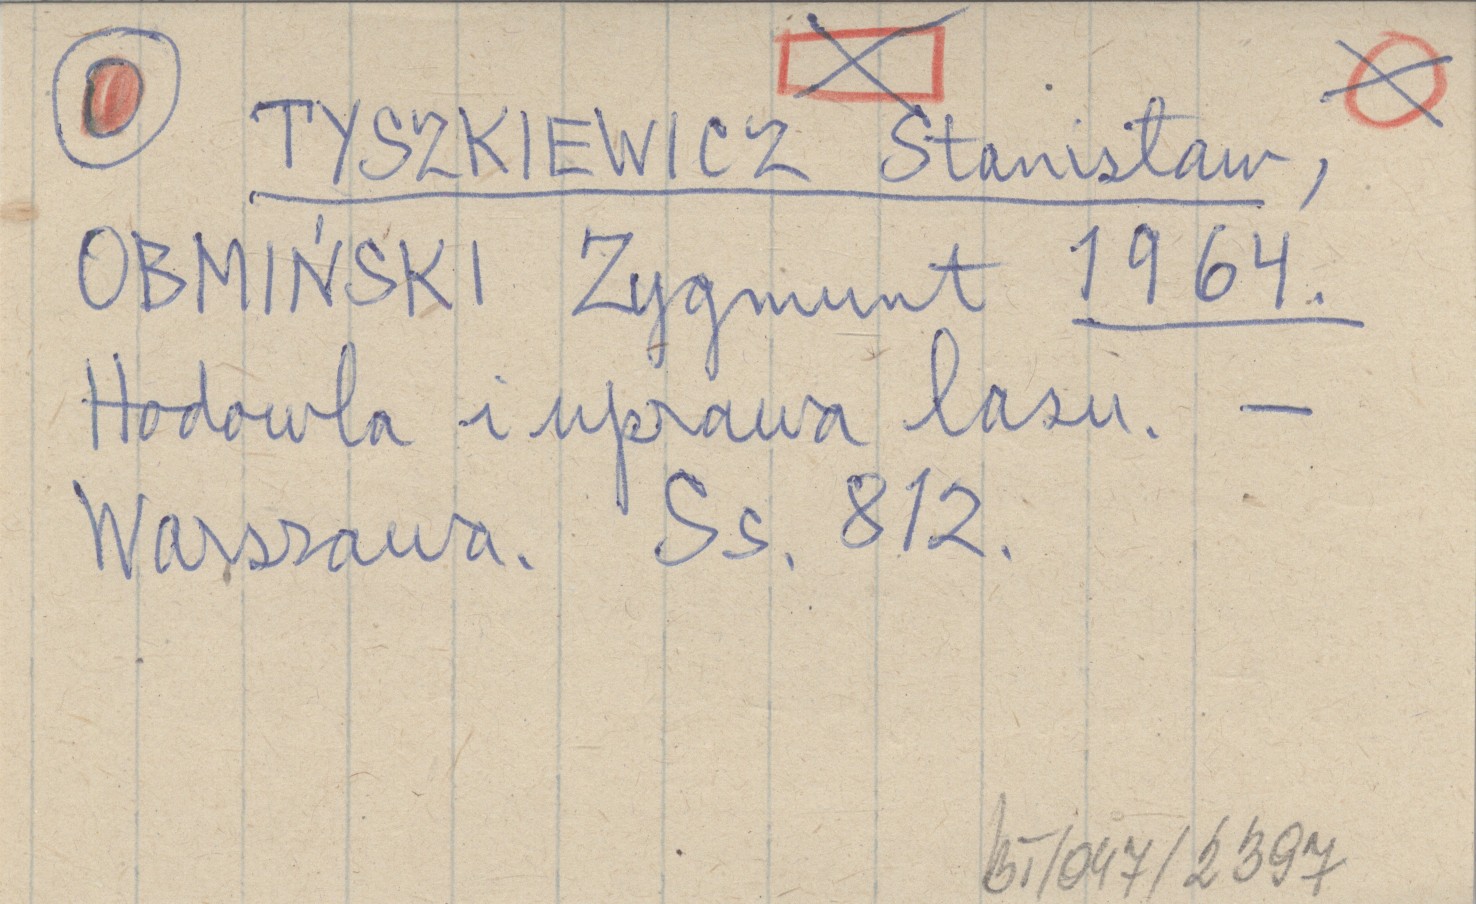 TYSZKIEWICZ Stanisław,
OBMIŃSKI Zygmunt 1964.
Hodowla i uprawa lasu. —
Warszawa. Ss. 812.
BI/047/2397